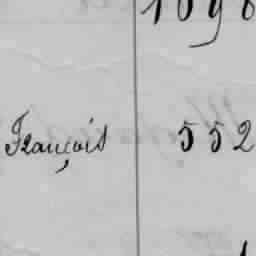 1898
François 552